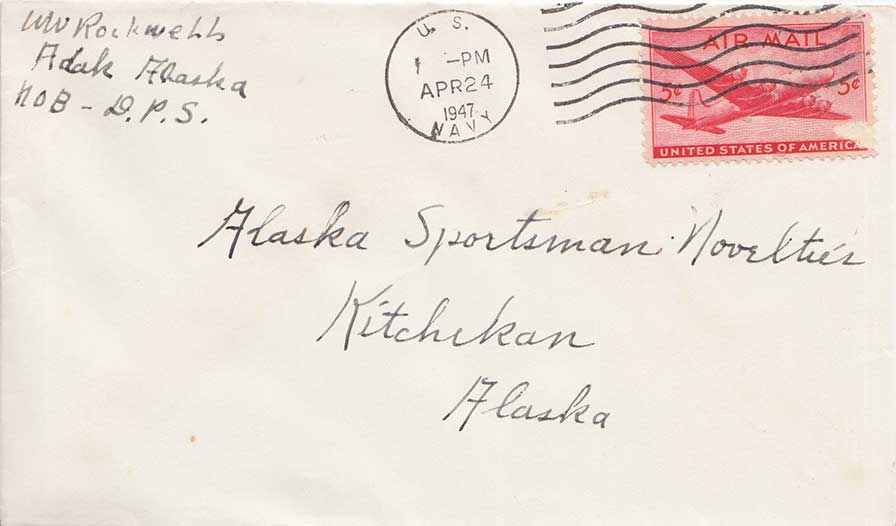 Rockwell
Adak Alaska
NOB - D.P.S.
U. S.
-PM
APR 24
1947
NAVY
AIR MAIL
5¢ 5¢
UNITED STATES OF AMERICA
Alaska Sportsman Novelties
Kitchikan
Alaska